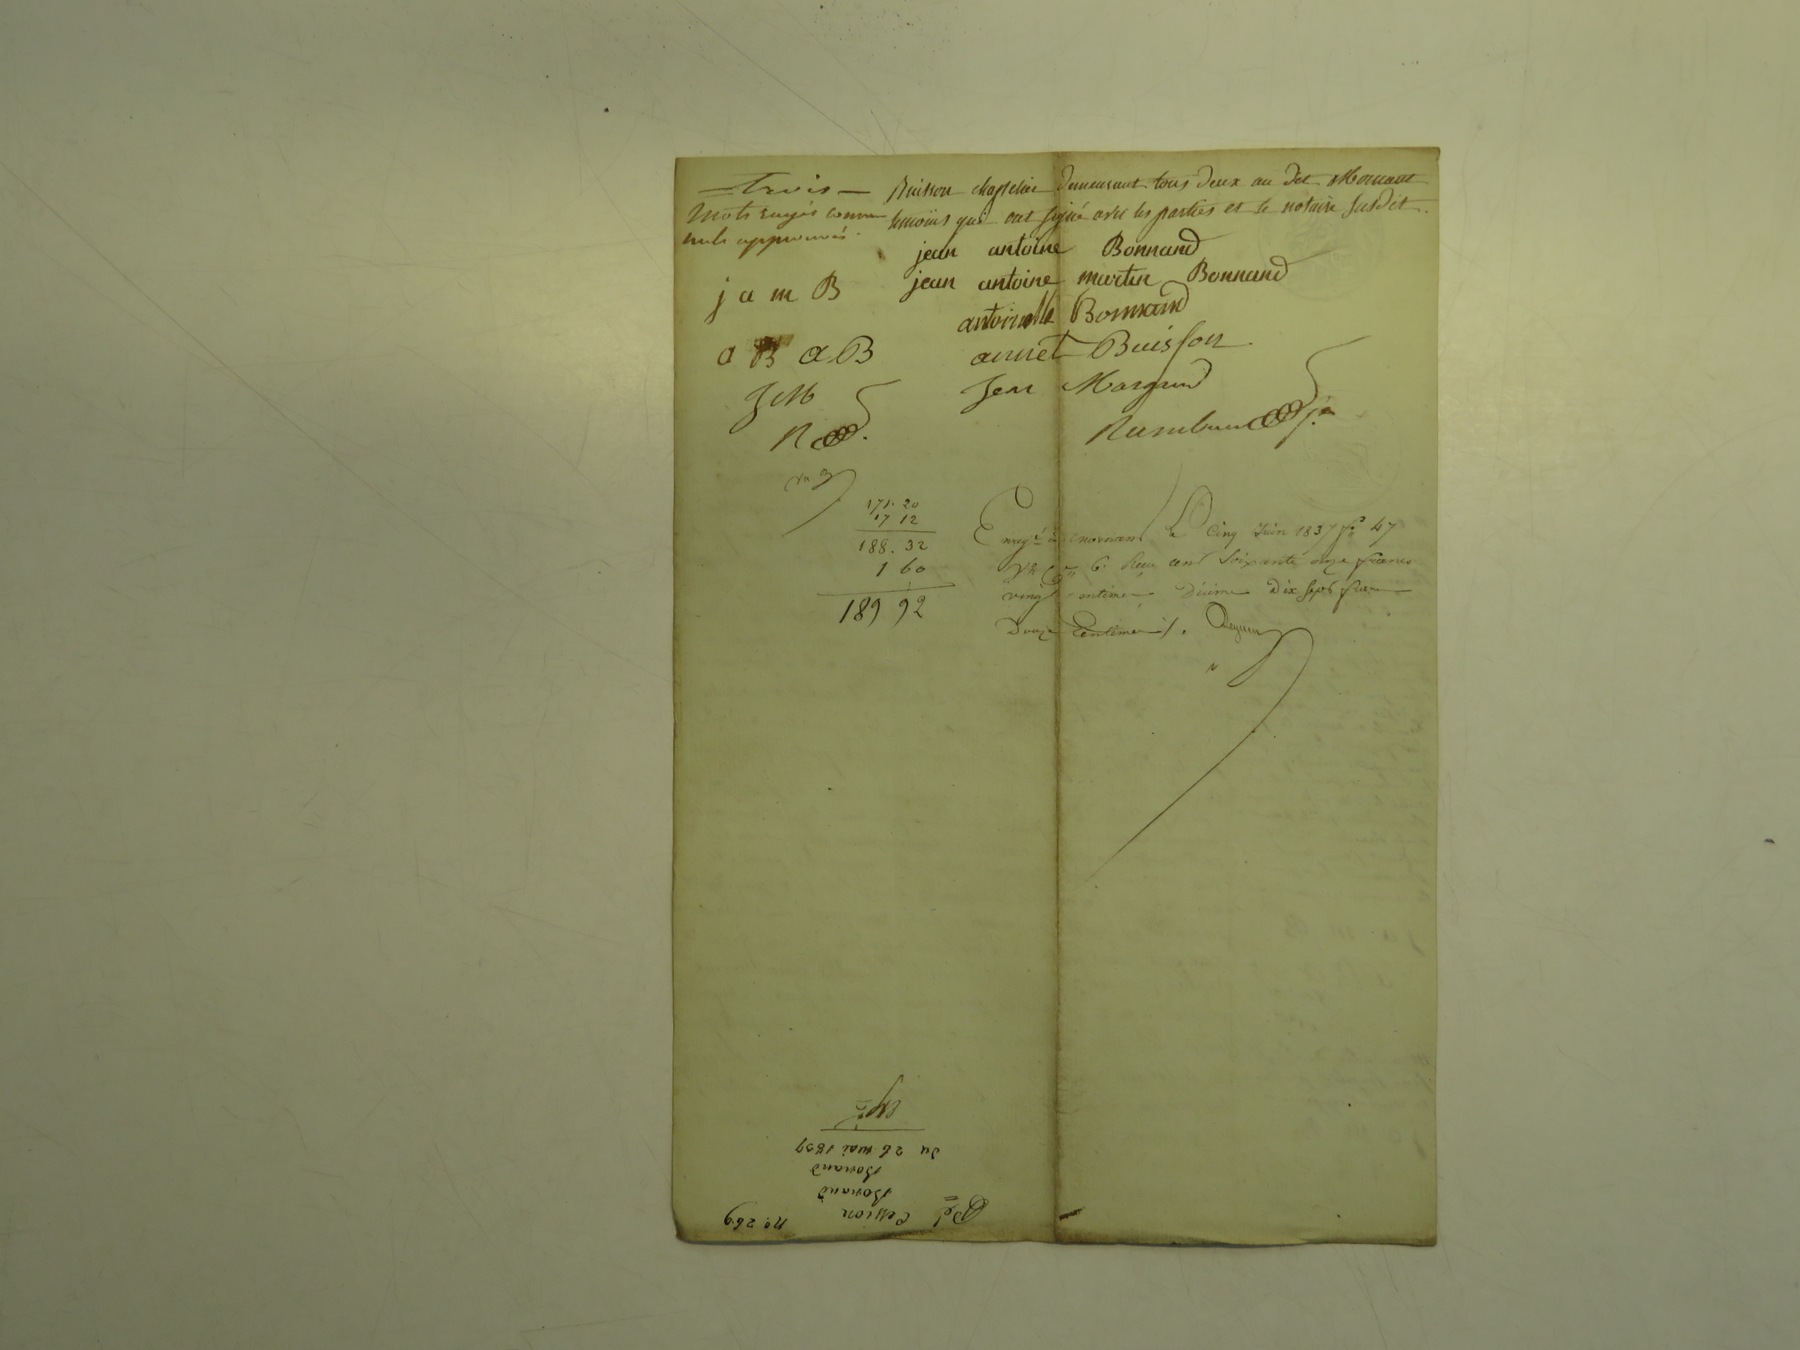 Buisson chapelier demeurant tous deux au dit Mornant
témoins qui ont signé avec les parties et le notaire susdit.
Trois
mots rayés comme
nuls approuvés.
jean antoine Bonnand
j a m B jean antoine martin Bonnand
antoinette Bonnand
a B a B annet Buisson
J M Jean Margand
R
171. 20
17 12
188. 32
1 60
189 92
Enregé à mornant le Cinq Juin 1837 fo 47
Vo Ce 6. Reçu cent soixante onze francs
vingt centimes Décime Dix sept francs
Douze centimes.
No. 269
Cession
Bonand
Bonand
du 26 mai 1837